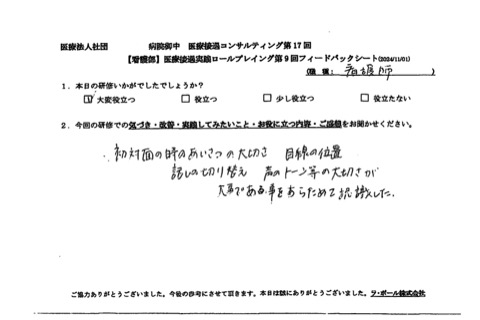 医療法人社団　　　病院御中　医療接遇コンサルティング第17回
【看護部】医療接遇実践ロールプレイング第9回フィードバックシート(2024/11/01)
(職種: 看護師 )
1．本日の研修いかがでしたでしょうか？
☑ 大変役立つ　□ 役立つ　□ 少し役立つ　□ 役立たない
2．今回の研修での気づき・改善・実践してみたいこと・お役に立つ内容・ご感想をお聞かせください。
初対面の時のあいさつの大切さ　目線の位置
話しの切り替え　声のトーン等の大切さが
大事である事をあらためて認識した.
ご協力ありがとうございました。今後の参考にさせて頂きます。本日は誠にありがとうございました。ラ・ポール株式会社